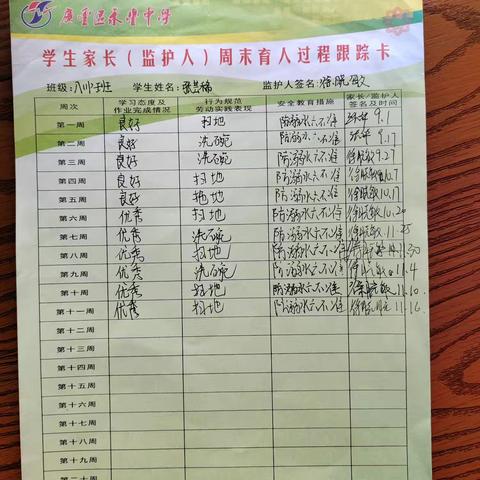 学生家长（监护人）周末育人过程跟踪卡
班级: 学生姓名: 监护人签名:
周次 学习态度及作业完成情况 行为规范劳动实践表现 安全教育措施 家长/监护人签名及时间
第一周 良好 扫地 防溺水六不准 9.1
第二周 良好 洗碗 防溺水六不准 9.17
第三周 良好 洗碗 防溺水六不准 9.27
第四周 良好 扫地 防溺水六不准 10.7
第五周 良好 拖地 防溺水六不准 10.17
第六周 优秀 扫地 防溺水六不准
第七周 优秀 洗碗 防溺水六不准
第八周 优秀 扫地 防溺水六不准
第九周 优秀 洗碗 防溺水六不准 11.4
第十周 优秀 扫地 防溺水六不准 11.10
第十一周 优秀 扫地 防溺水六不准 11.16
第十二周
第十三周
第十四周
第十五周
第十六周
第十七周
第十八周
第十九周
第二十周